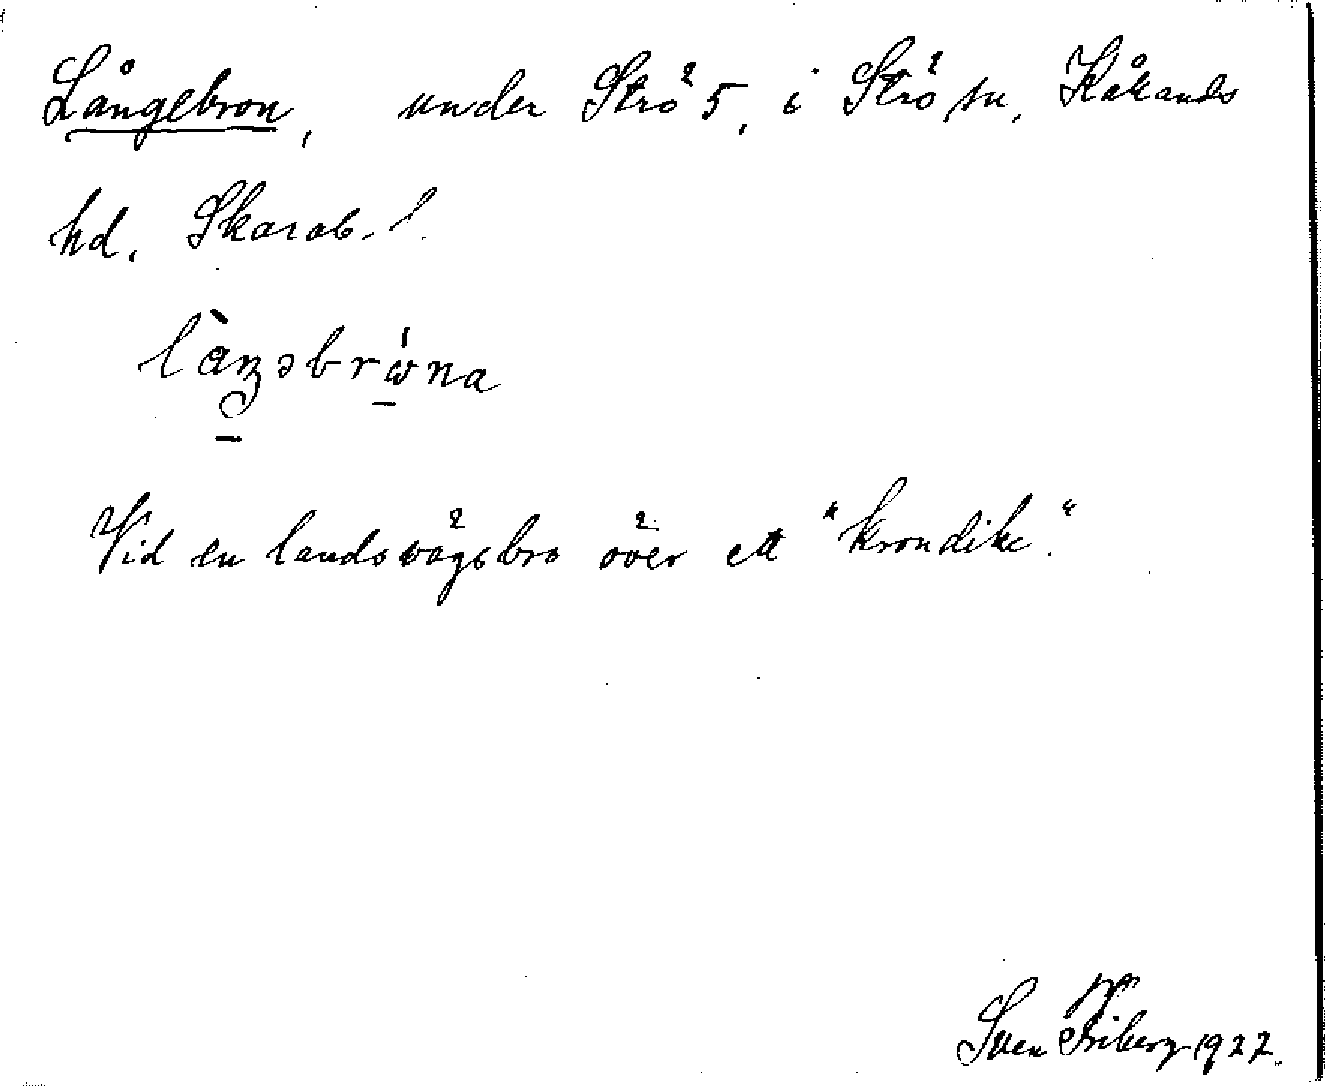 Långebron, under Strö 5, i Strö sn, Kålands
hd. Skarab. l.
Vid en landsvägsbro över ett "krondike."
Sven Friberg 1922.